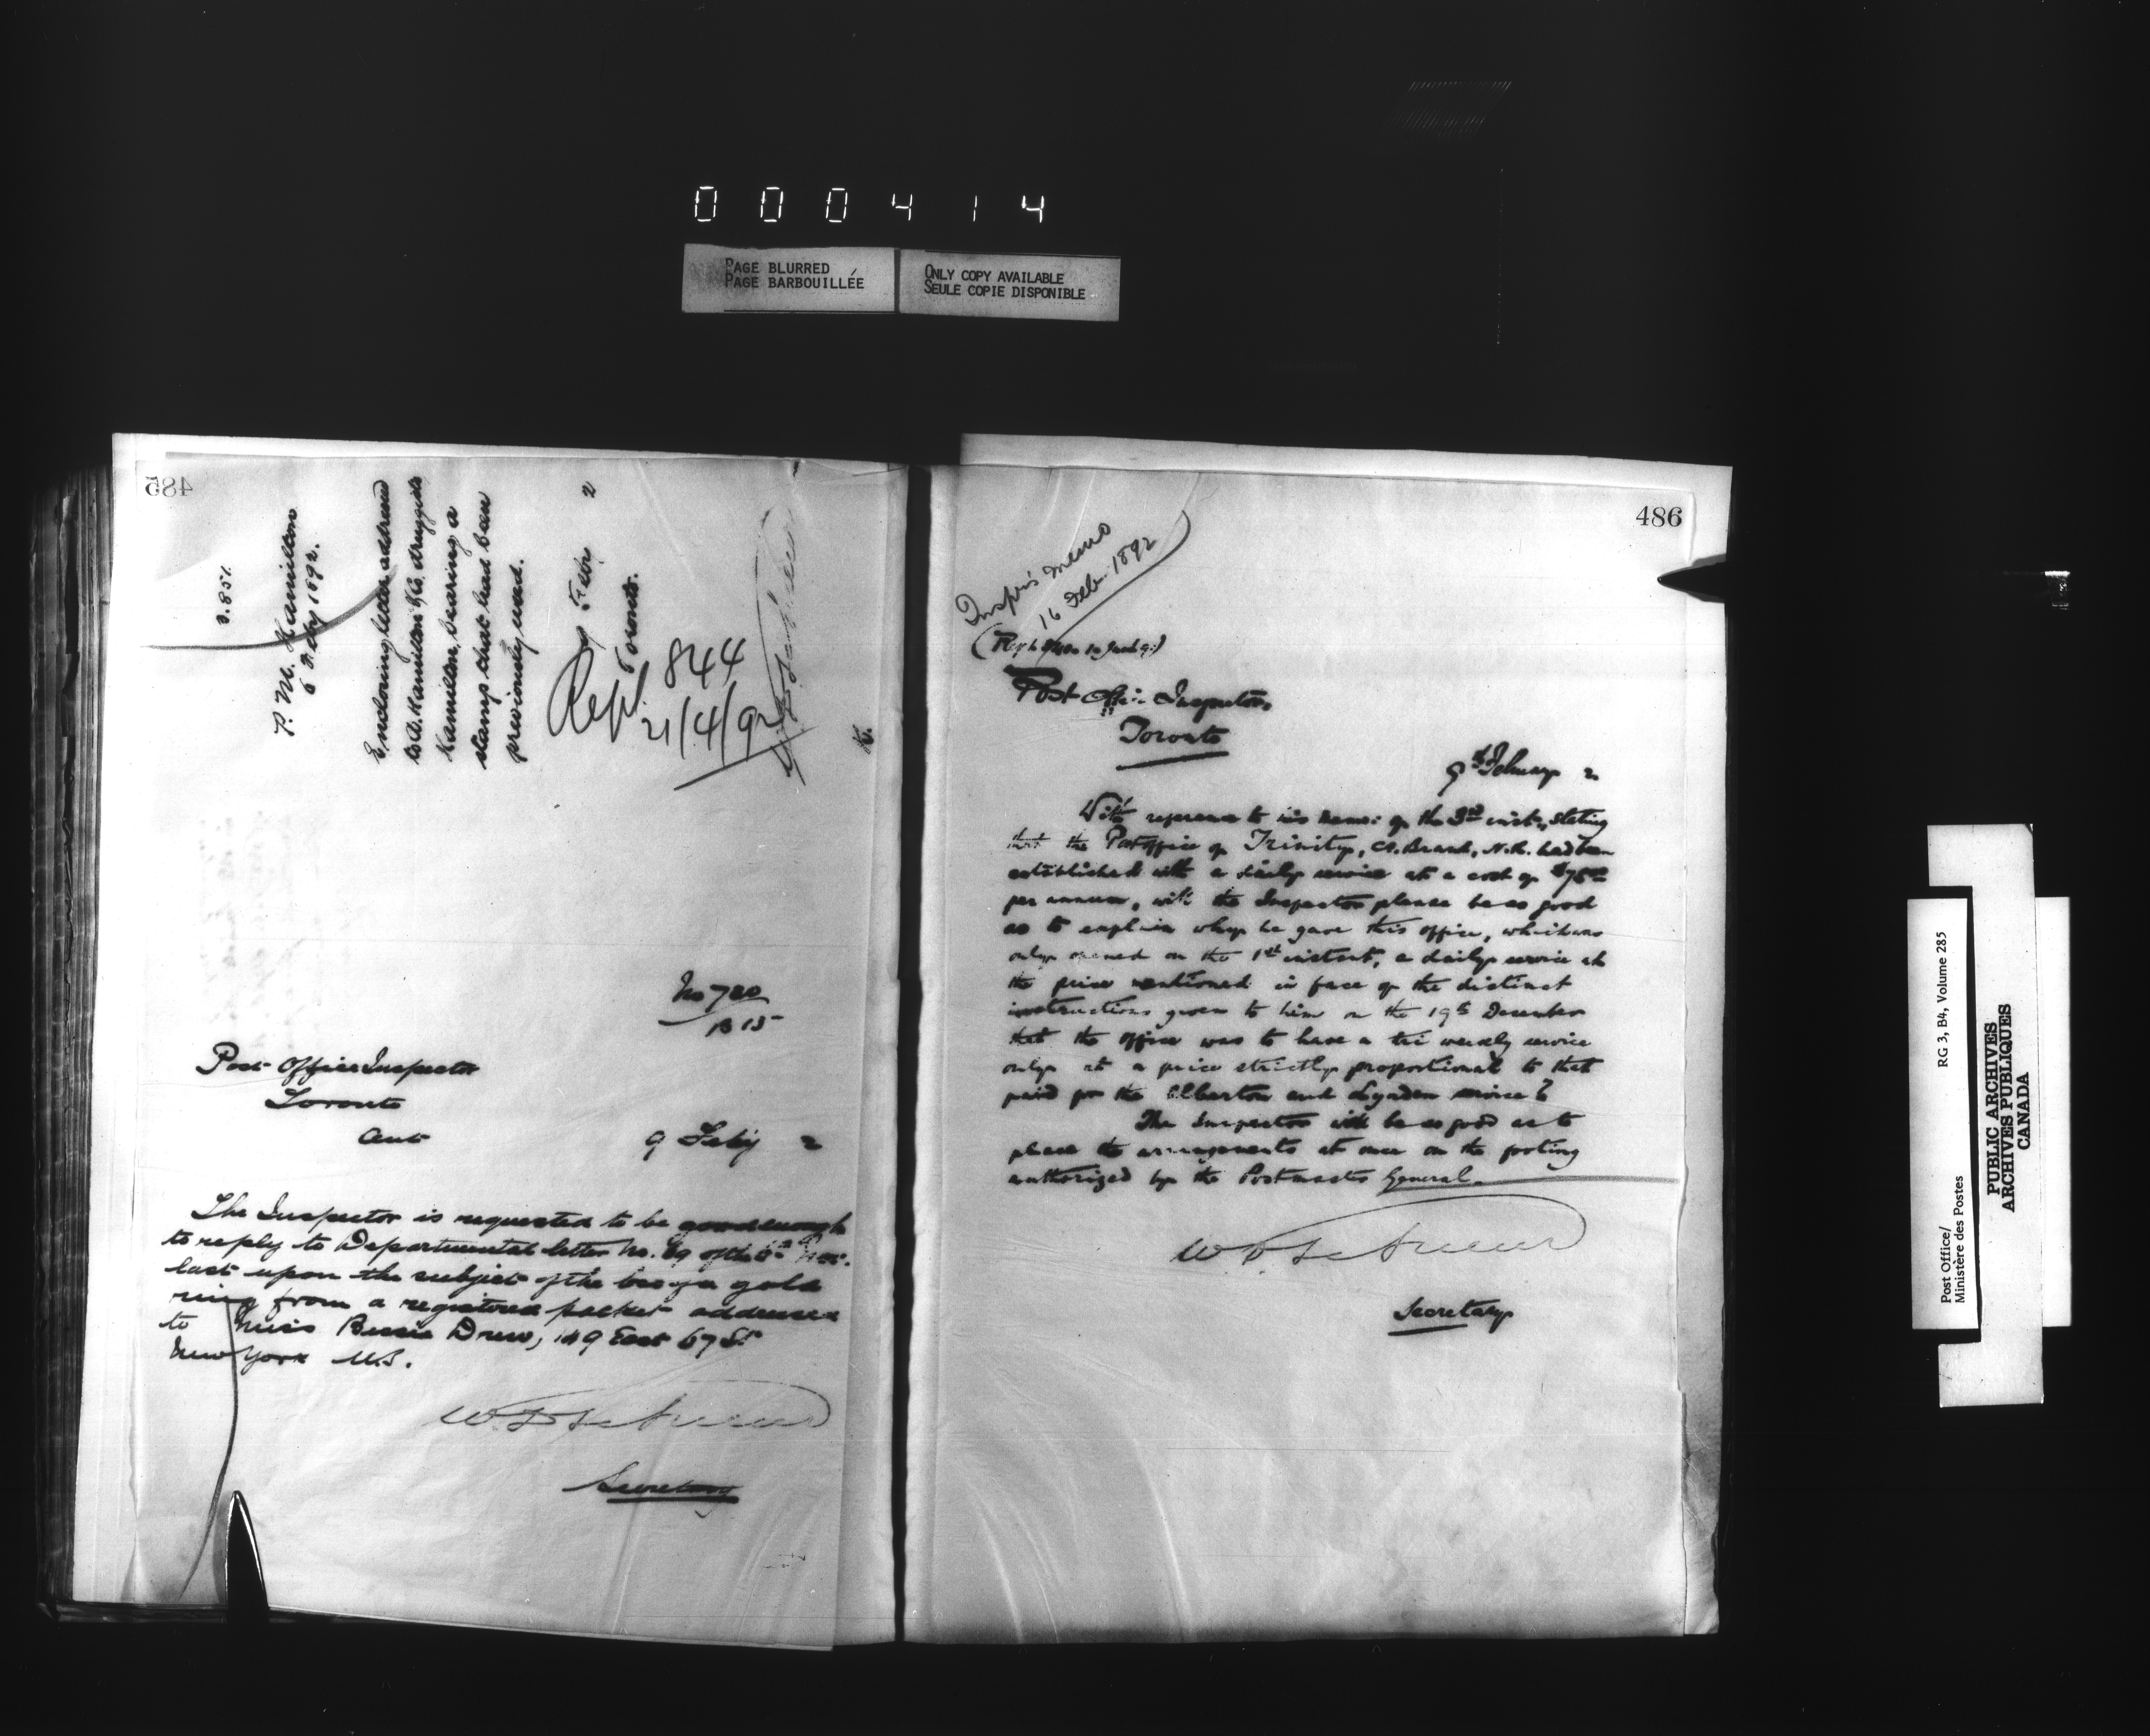 000414
PAGE BLURRED
PAGE BARBOUILLÉE
ONLY COPY AVAILABLE
SEULE COPIE DISPONIBLE
485
3.851.
P. M. Hamilton
6 Feby 1892.
Enclosing letter addressed
to A. Hamilton & Co. druggists
Hamilton, bearing a
stamp that had been
previously used.
9 Febr 2
Toronto.
Repl. 844
21/4/92
K.
No 780
B 15
Post Office Inspector
Toronto
Ont
9 Feby 2
The Inspector is requested to be good enough
to reply to Departmental letter No. 69 of the
last upon the subject of the loss of a gold
ring from a registered packet addressed
to Miss Bessie Drew, 149 East 67 St.
New York U.S.
Secretary
486
Inspr's memo
16 Feb. 1892
Post Offi: Inspector,
Toronto
9th February 2
With reference to his memo: of the 3rd inst., stating
that the Post office of Trinity, Brant, N.R. had been
established with a daily service at a cost of $75
per annum, will the Inspector please be so good
as to explain why he gave this office, which was
only opened on the 1st instant, a daily service at
the price mentioned in face of the distinct
instructions given to him on the 19th December
that the office was to have a tri weekly service
only at a price strictly proportional to that
paid for the Alberton and Lynden service?
The Inspector will be so good as to
place the arrangements at once on the footing
authorized by the Postmaster General.
Secretary
Post Office/
Ministère des Postes
RG 3, B4, Volume 285
PUBLIC ARCHIVES
ARCHIVES PUBLIQUES
CANADA